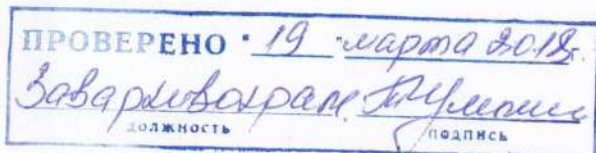 ПРОВЕРЕНО "19" марта 2012г.
Зав архивохран.
должность подпись